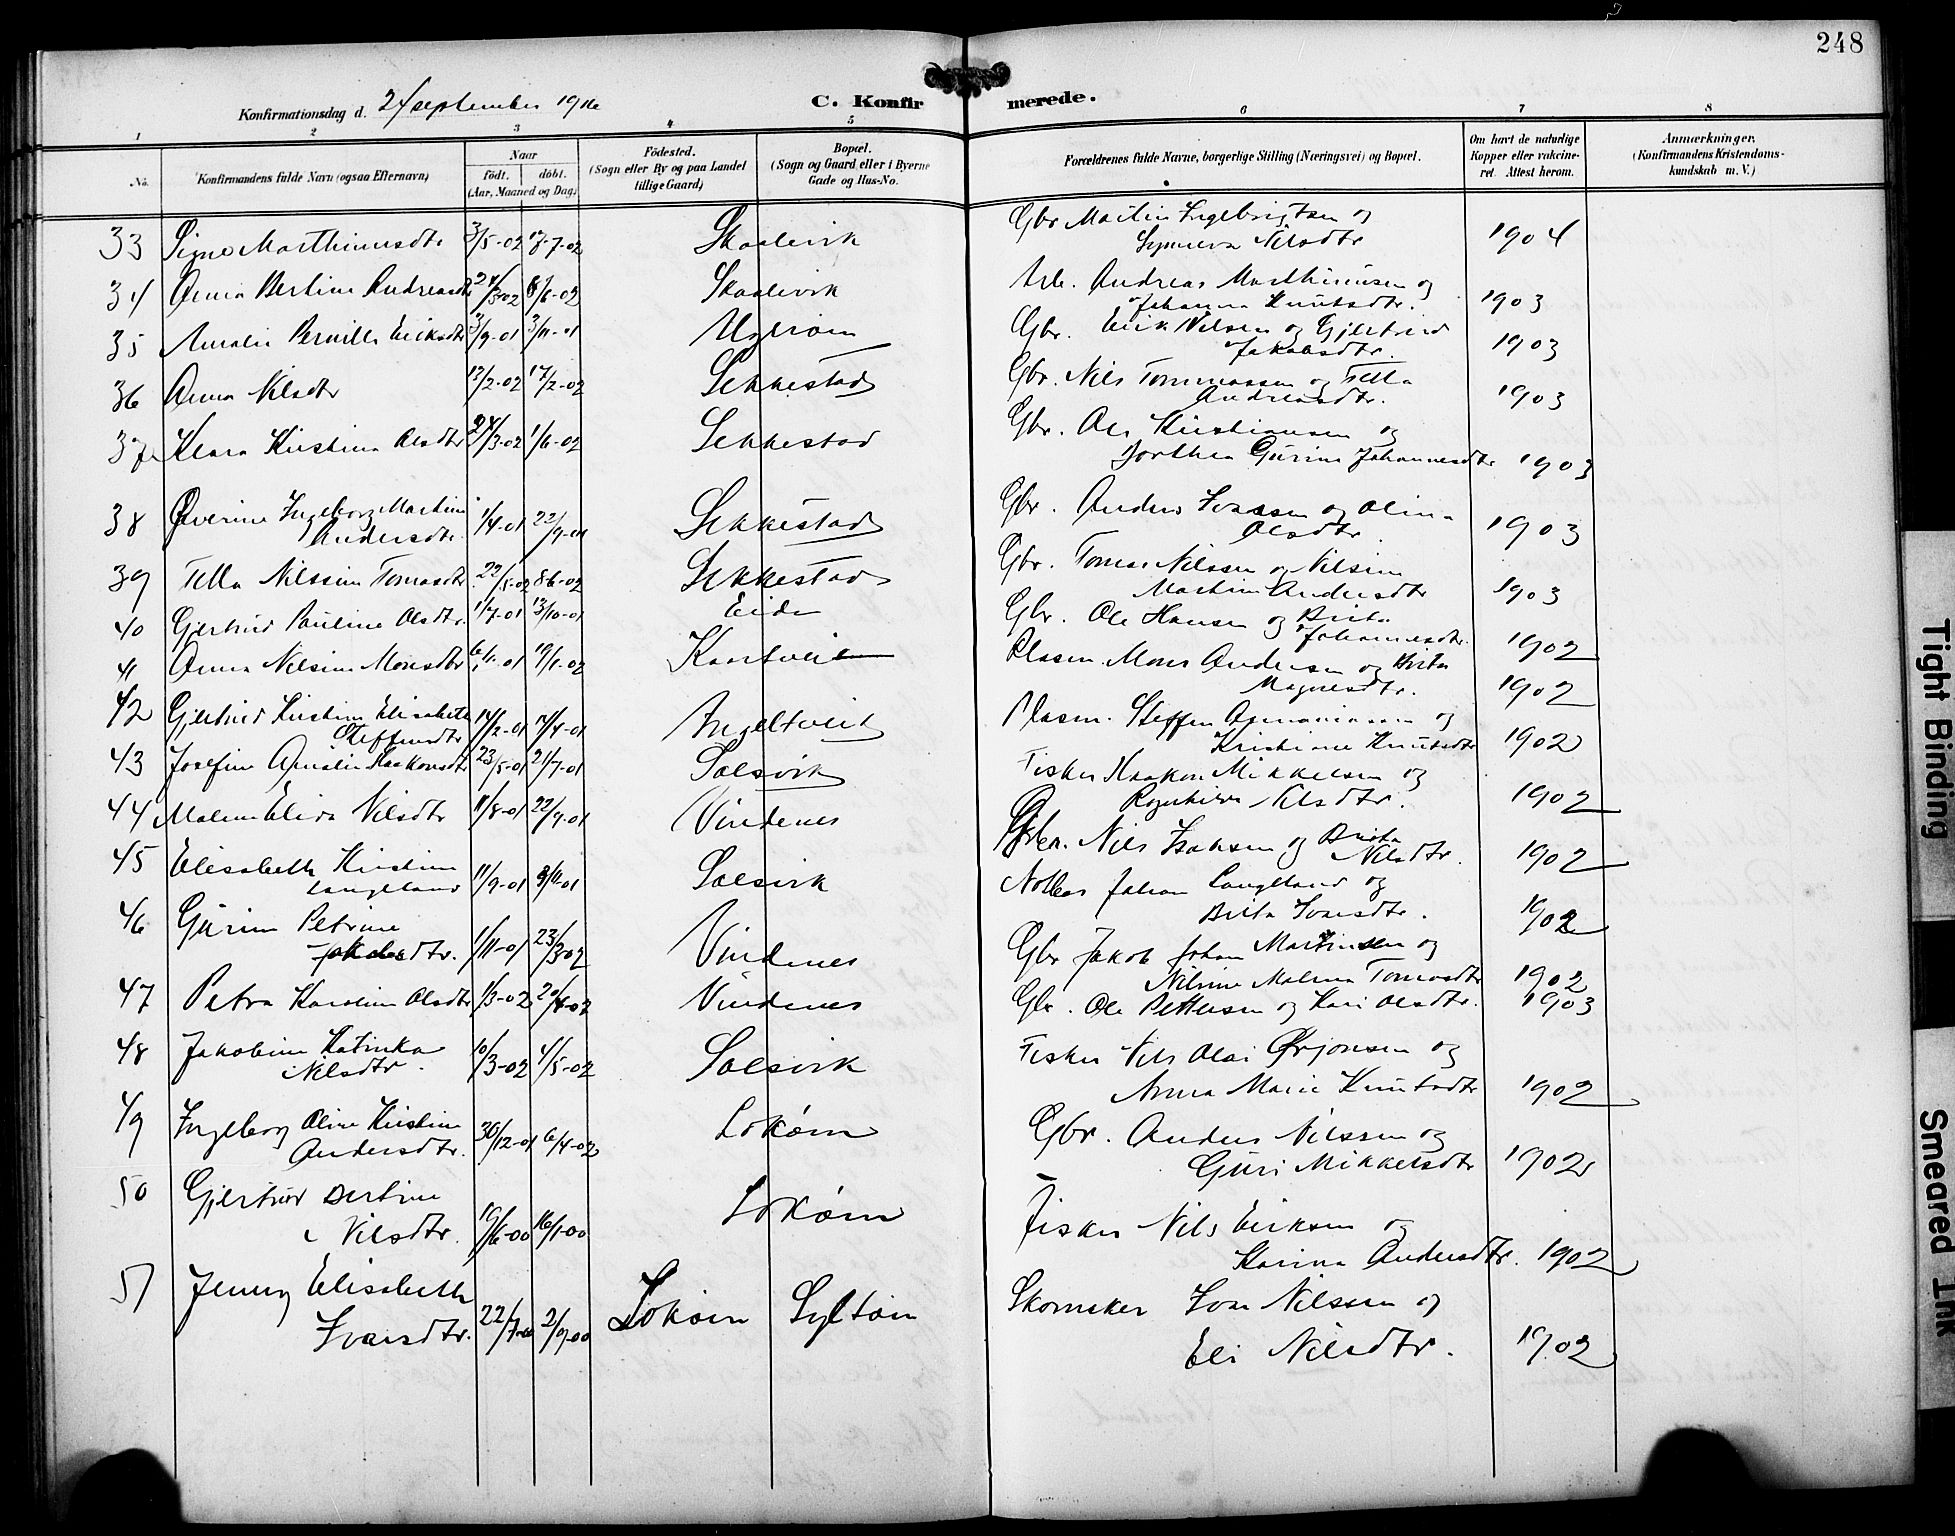 248
Konfirmationsdag d. 24 september 1916
C. Konfirmerede.
1 2 3 4 5 6 7 8
No.
Konfirmandens fulde Navn (ogsaa Efternavn)
Naar
födt. döbt.
(Aar, Maaned og Dag)
Födested.
(Sogn eller By og paa Landet
tillige Gaard)
Bopæl.
(Sogn og Gaard eller i Byerne
Gade og Hus-No.
Forældrenes fulde Navne, borgerlige Stilling (Næringsvei) og Bopæl.
Om havt de naturlige
Kopper eller vakcine-
ret. Attest herom.
Anmærkninger.
(Konfirmandens Kristendoms-
kundskab m. V.)
33 Signe Marthinusdtr 3/5-02 13/7-02 Skaalevik Gbr Martin Ingebrigtsen og
Synneva Nilsdtr 1904
34 Anna Bertine Andreasdtr 24/3-02 8/6-02 Skaalevik Arb. Andreas Marthinusen og
Johanna Knutsdtr. 1903
35 Amalie Pernille Eriksdtr 3/9-01 3/11-01 Gbr. Erik Nilsen og Gjertrud
Jakobsdtr. 1903
36 Anna Nilsdtr 12/2-02 17/2-02 Sekkestad Gbr. Nils Tommassen og Tella
Andreasdtr. 1903
37 Klara Kristina Olsdtr 24/3-02 1/6-02 Sekkestad Gbr. Ole Kristiansen og
Dorthea Gurine Johannesdtr 1903
38 Severine Ingeborg Martine
Andersdtr. 1/4-01 22/9-01 Sekkestad Gbr. Anders Ivassen og Olina
Olsdtr. 1903
39 Tella Nilssine Tomasdtr 22/5-02 8-6-02 Sekkestad Gbr. Tomas Nilssen og Nilsine
Martine Andersdtr 1903
40 Gjertrud Pauline Olsdtr. 1/7-01 13/10-01 Eide Gbr. Ole Hansen og Brita
Johannesdtr. 1902
41 Anna Nilsine Monsdtr 6/11-01 19/1-02 Kaartveit Plasm. Mons Andersen og Brita
Magnesdtr. 1902
42 Gjertrud Kristine Elisabeth
Steffensdtr 14/2-01 14/4-01 Angeltveit Plasm. Steffen og
Kristiane Knutsdtr 1902
43 Josefine Amalie Haakonsdtr 23/5-01 21/7-01 Solsvik Fisker Haakon Mikkelsen og
Nilsdtr. 1902
44 Malene Nilsdtr 11/8-01 22/9-01 Vindenes Nils Isaksen og Brita
Nilsdtr. 1902
45 Elisabeth Kristine
Langeland 11/9-01 3/11-01 Solsvik Johan Langeland og
Brita Ivarsdtr. 1902
46 Gurine Petrine
Jakobsdtr. 1/11-01 23/3-02 Vindenes Gbr Jakob Johan Martinsen og
Nilsine Malena Tomasdtr 1902
47 Petra Karoline Olsdtr 1/3-02 20/4-02 Vindenes Gbr. Ole Pettersen og Kari Olsdtr. 1903
48 Jakobine Katinka
Nilsdtr. 10/3-02 4/5-02 Solsvik Fisker Nils Olai Ørjonsen og
Anna Marie Knutsdtr 1902
49 Ingeborg Oline Kristine
Andersdtr. 30/12-01 6/4-02 Lokøen Gbr. Anders Nilssen og
Guri Mikkelsdtr 1902
50 Gjertrud Bertine
Nilsdtr. 19/6-00 16/1-00 Lokøen Fisker Nils Eriksen og
Karina Andersdtr. 1902
51 Jenny Elisabeth
Ivarsdtr. 22/7-00 2/9-00 Lokøen Syltøen Skomaker Ivar Nilssen og
Eli Nilsdtr. 1902
Tight Binding
Smeared Ink